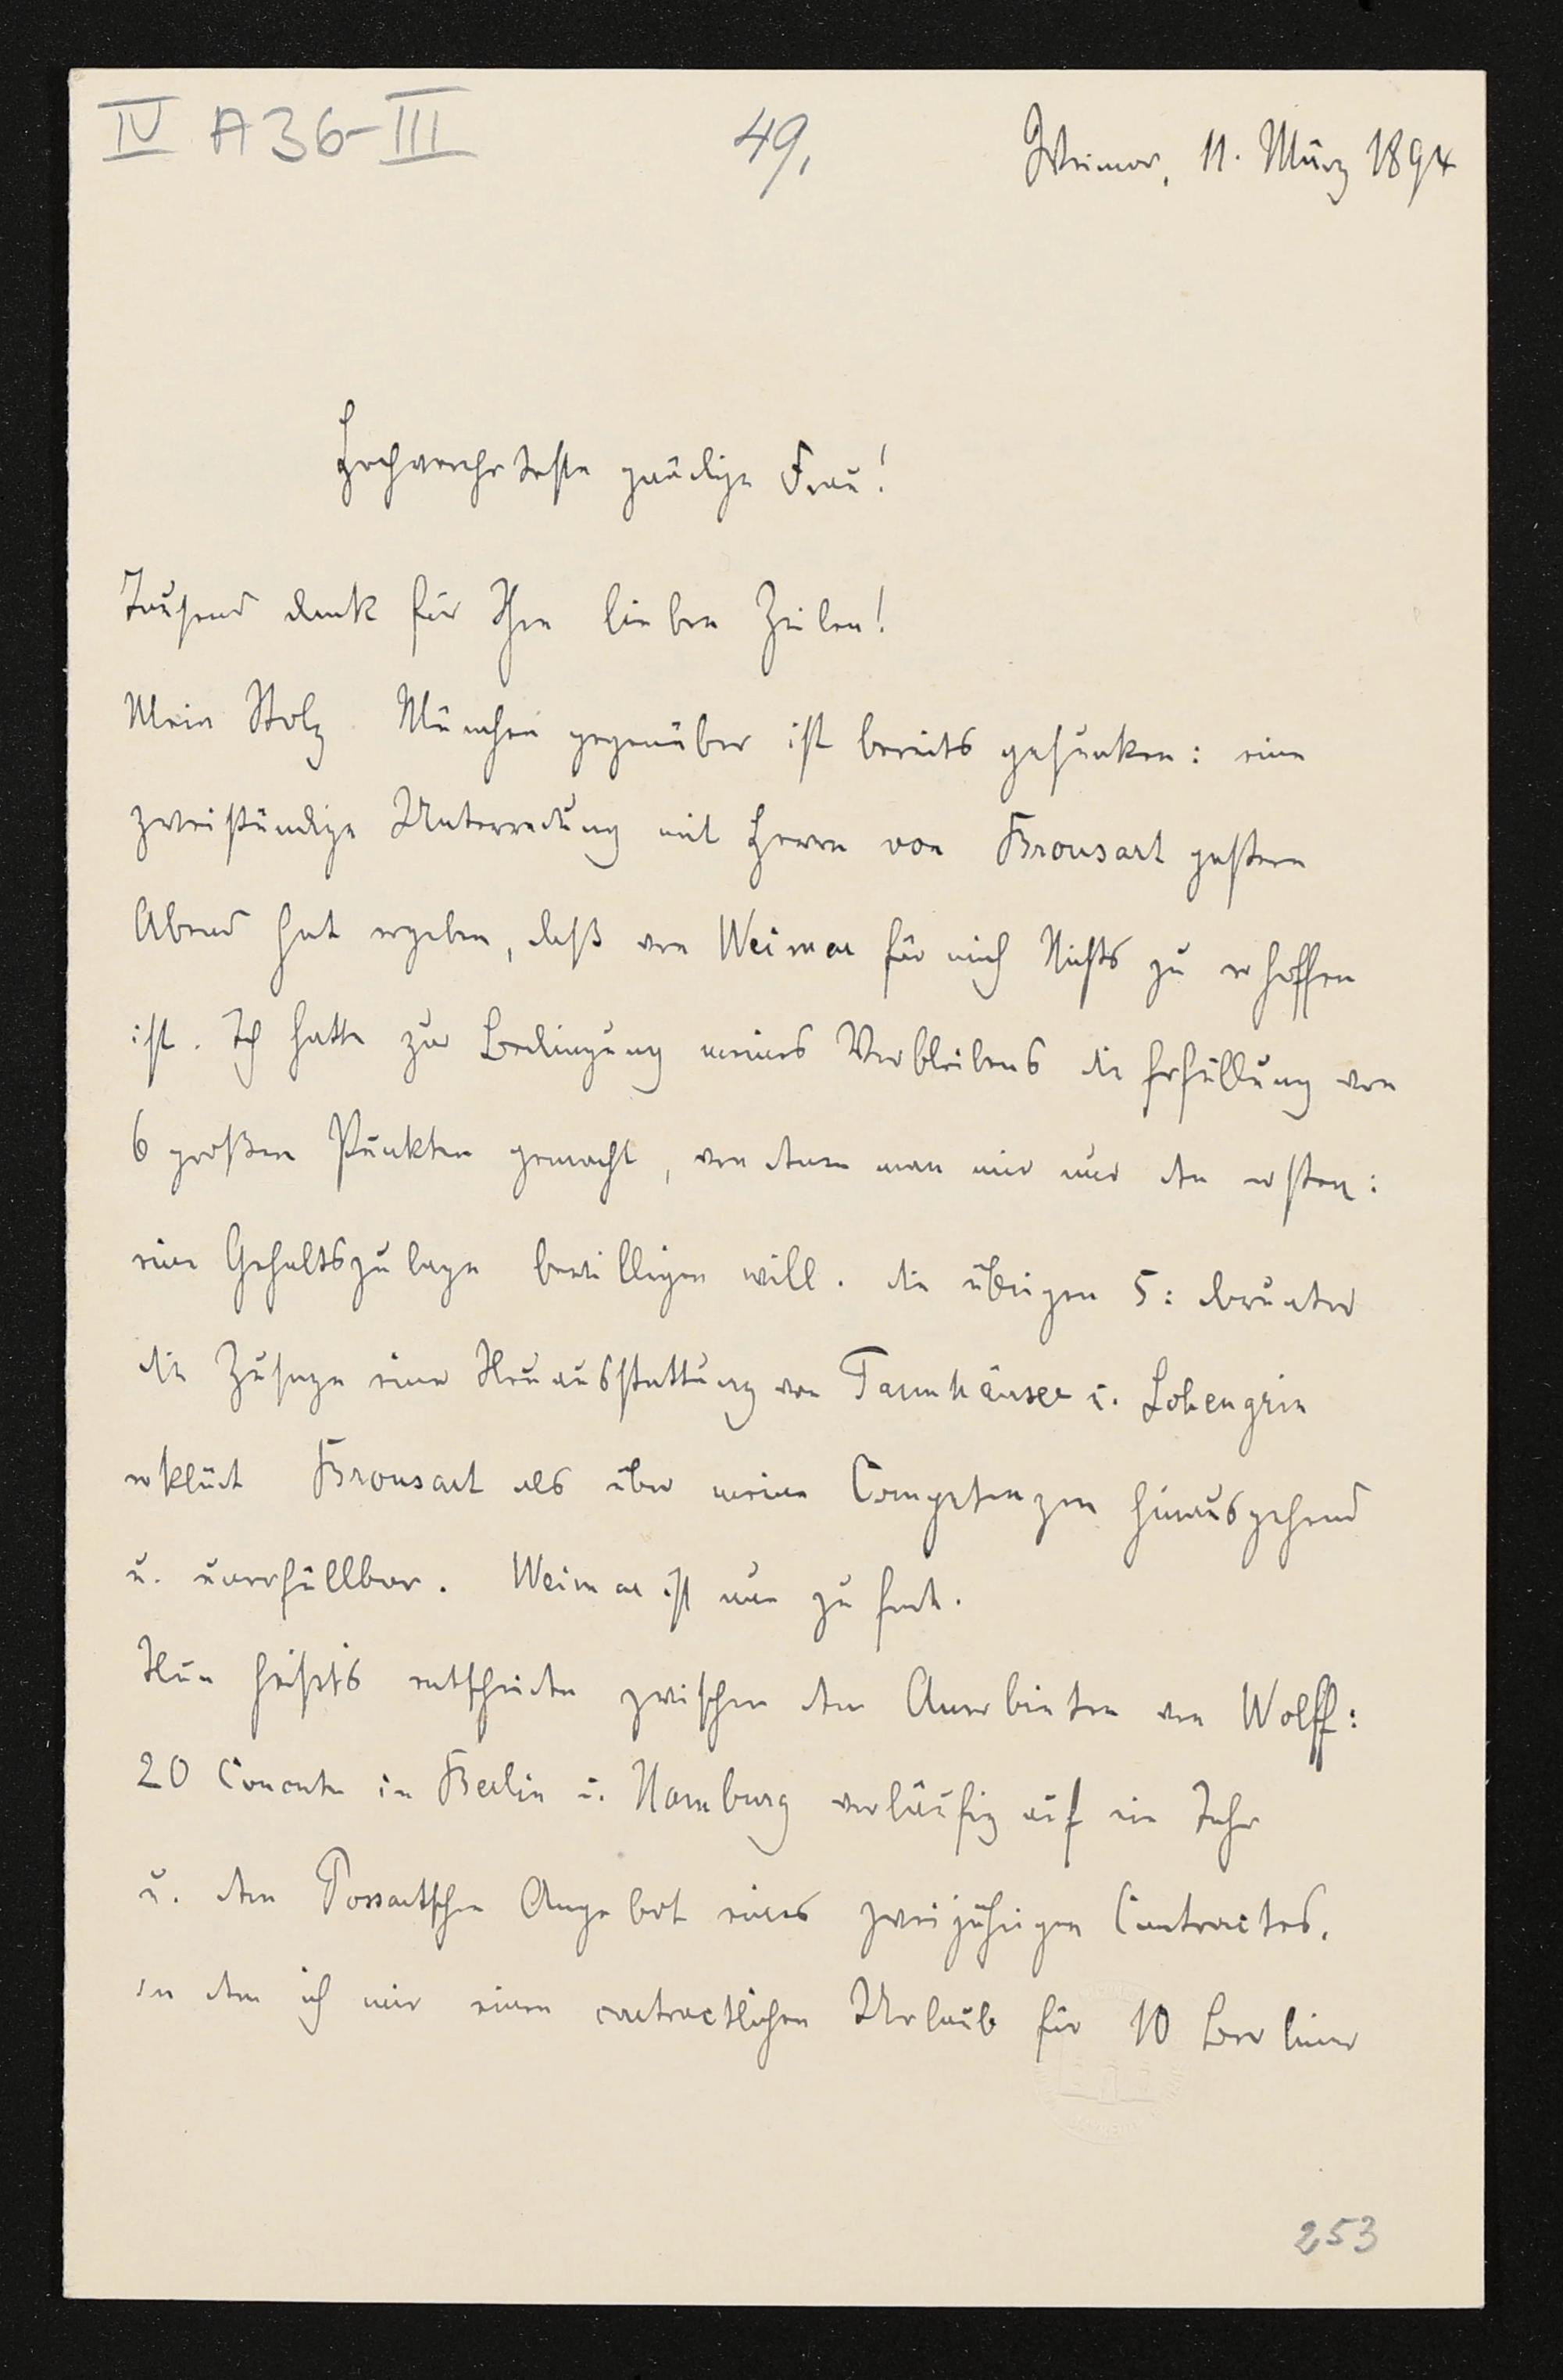 IV A36-III
49.
Weimar, 11. März 1894
Hochverehrteste gnädige Frau!
Tausend dank für Ihre lieben Zeilen!
Mein Stolz München gegenüber ist bereits gesunken: eine
zweistündige Unterredung mit Herrn von Bronsart gestern
Abend hat ergeben, daß von Weimar für mich Nichts zu erhoffen
ist. Ich hatte zur Bedingung meines Verbleibens die Erfüllung von
6 großen Punkten gemacht, von denen man mir nur den ersten:
eine Gehaltszulage bewilligen will. die übrigen 5: darunter
die Zusage einer Neuausstattung von Tannhäuser u. Lohengrin
erklärt Bronsart als über meine Competenzen hinausgehend
u. unerfüllbar. Weimar ist nun zu Ende.
Nun heißt's entscheiden zwischen dem Anerbieten von Wolff:
20 Concerte in Berlin u. Hamburg vorläufig auf ein Jahr
u. dem Possartschen Angebot eines zweijährigen Contractes,
in dem ich mir einen contractlichen Urlaub für 10 Berliner
253